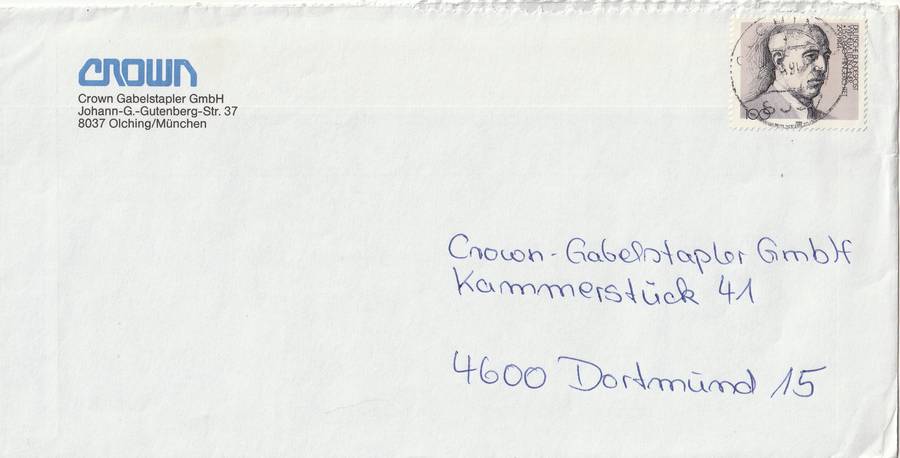 CROWN
Crown Gabelstapler GmbH
Johann-G.-Gutenberg-Str. 37
8037 Olching/München
100
Crown-Gabelstapler GmbH
Kammerstück 41
4600 Dortmünd 15